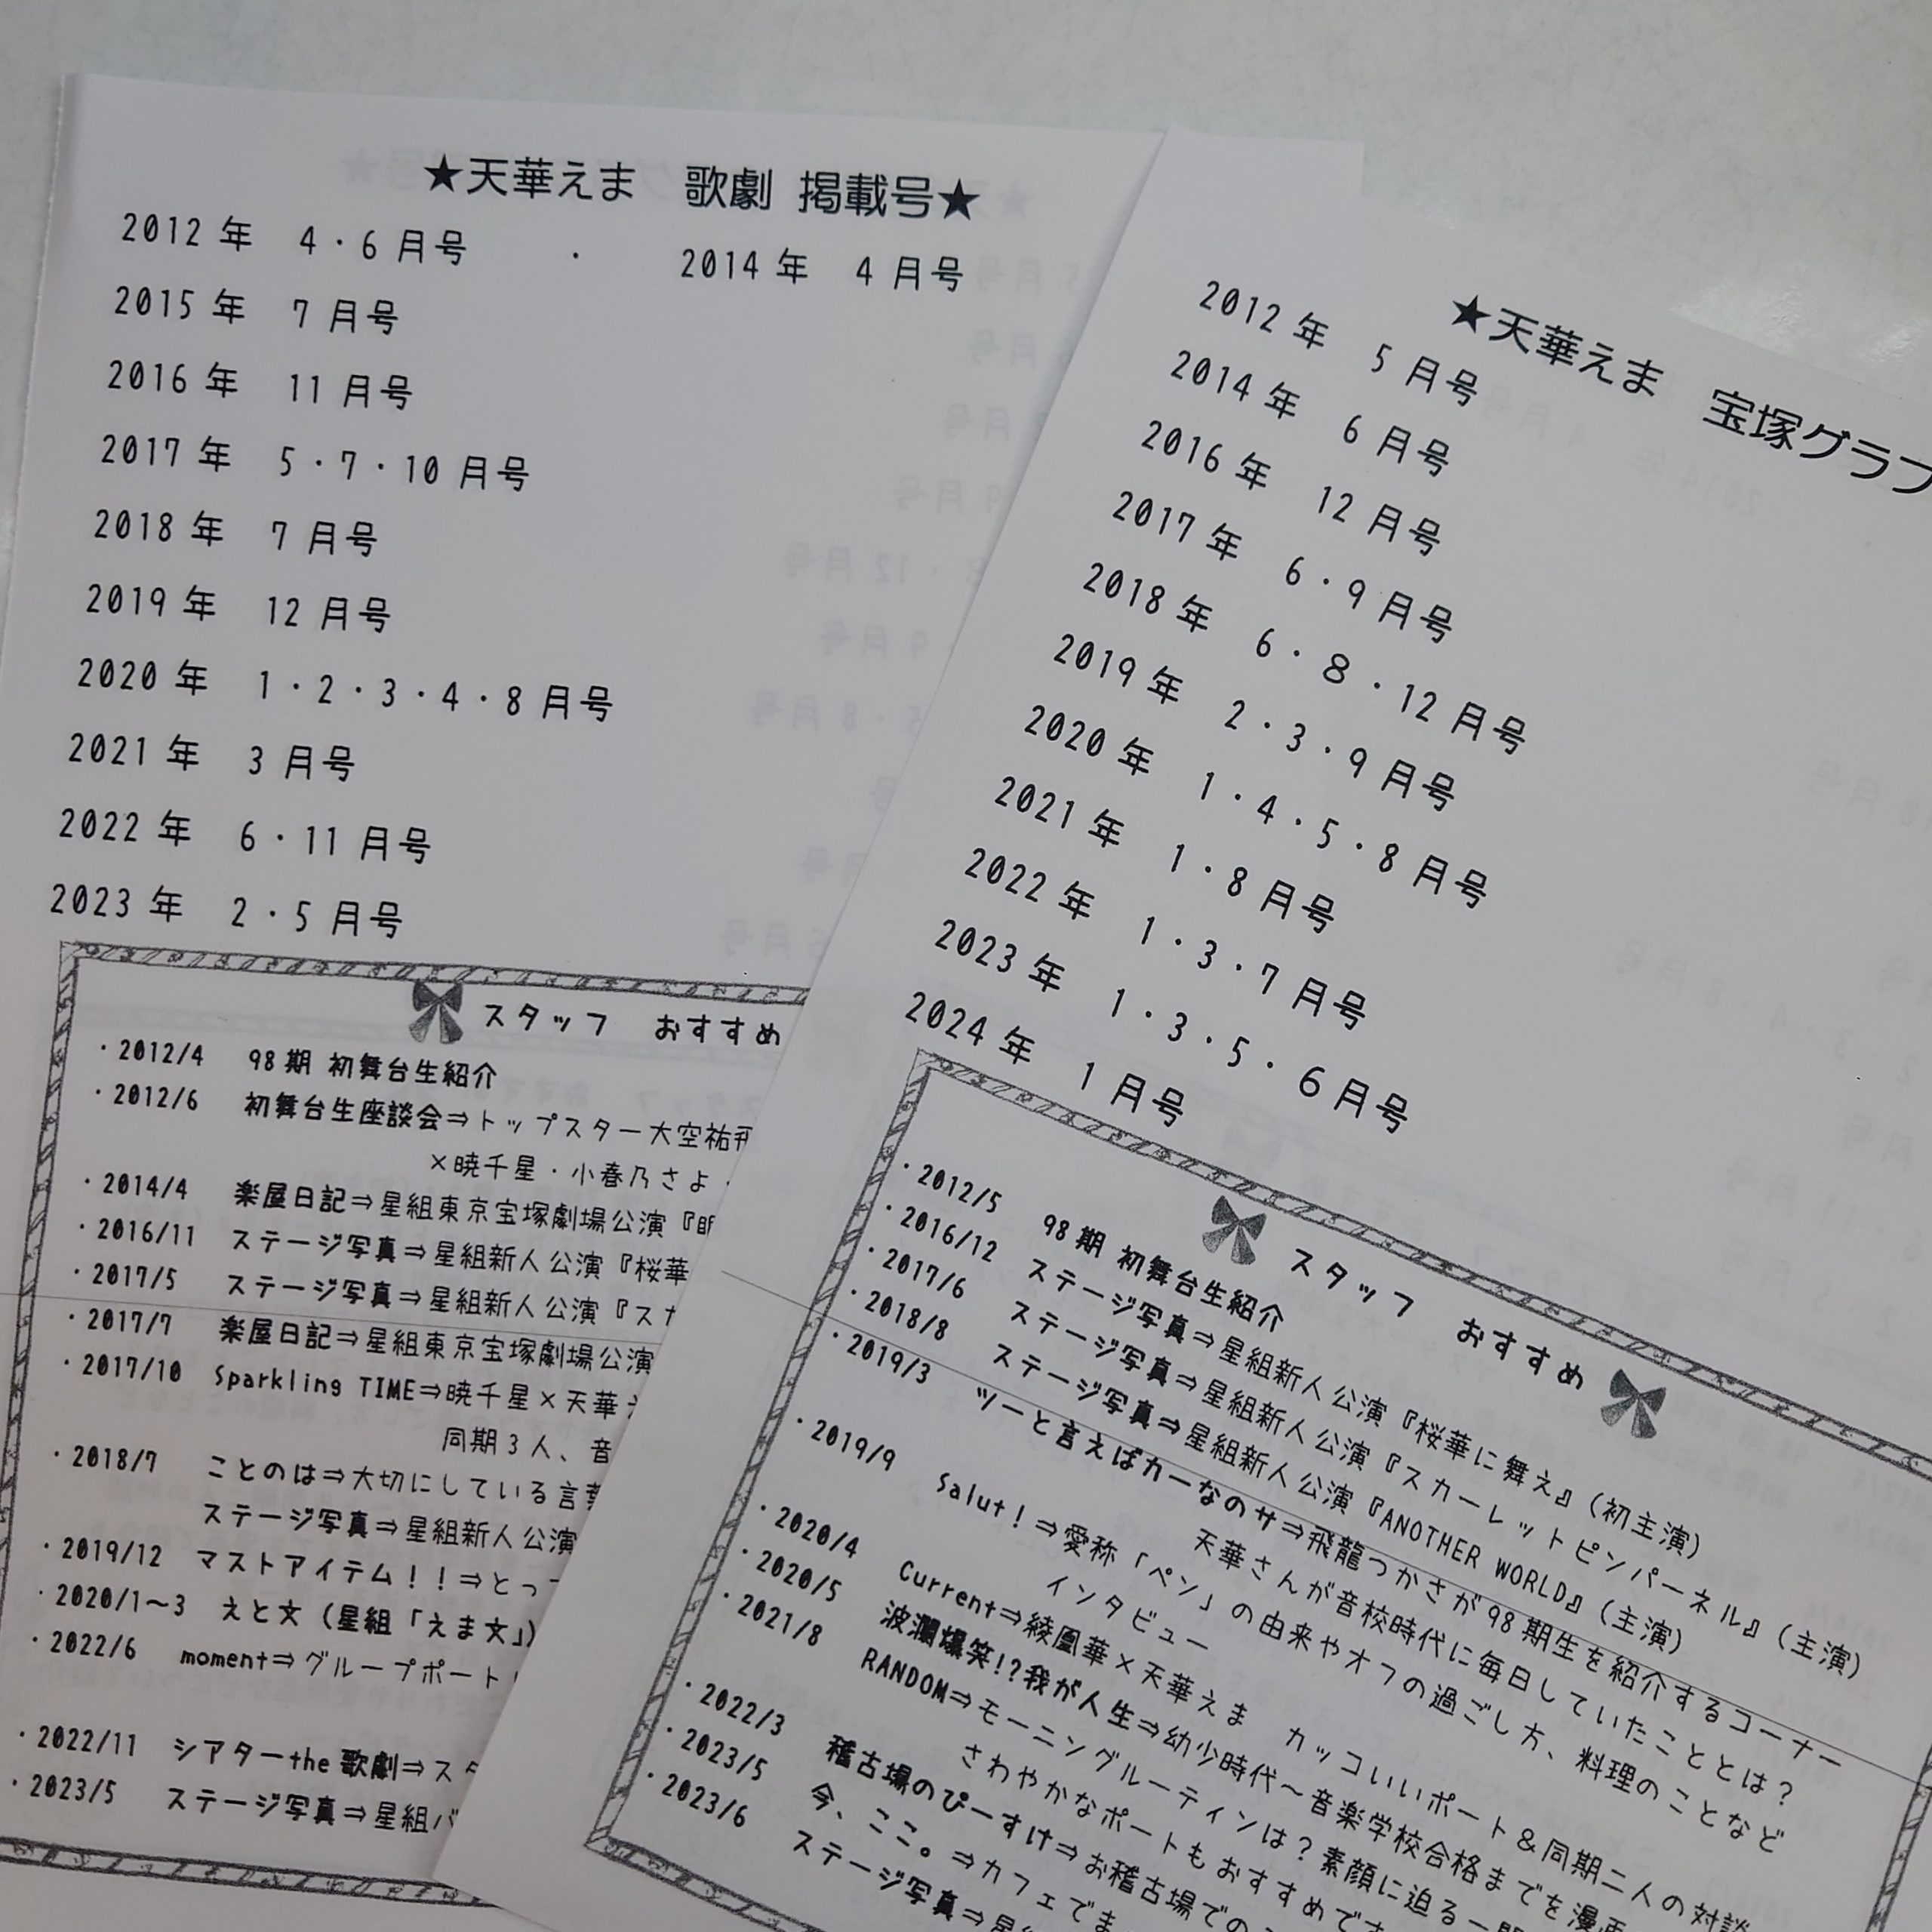 ★天華えま 歌劇 掲載号★
2012年 4・6月号 ・ 2014年 4月号
2015年 7月号
2016年 11月号
2017年 5・7・10月号
2018年 7月号
2019年 12月号
2020年 1・2・3・4・8月号
2021年 3月号
2022年 6・11月号
2023年 2・5月号
スタッフ おすすめ
・2012/4 98期 初舞台生紹介
・2012/6 初舞台生座談会⇒トップスター大空祐飛
×暁千星・小春乃さよ・
・2014/4 楽屋日記⇒星組東京宝塚劇場公演『
・2016/11 ステージ写真⇒星組新人公演『桜華
・2017/5 ステージ写真⇒星組新人公演『スカ
・2017/7 楽屋日記⇒星組東京宝塚劇場公演
・2017/10 Sparkling TIME⇒暁千星×天華
同期3人、音
・2018/7 ことのは⇒大切にしている言葉
ステージ写真⇒星組新人公演
・2019/12 マストアイテム！！⇒とっ
・2020/1～3 えと文（星組「えま文」）
・2022/6 moment⇒グループポート
・2022/11 シアターthe歌劇⇒スタ
・2023/5 ステージ写真⇒星組バ
★天華えま 宝塚グラフ
2012年 5月号
2014年 6月号
2016年 12月号
2017年 6・9月号
2018年 6・8・12月号
2019年 2・3・9月号
2020年 1・4・5・8月号
2021年 1・8月号
2022年 1・3・7月号
2023年 1・3・5・6月号
2024年 1月号
スタッフ おすすめ
・2012/5 98期 初舞台生紹介
・2016/12 ステージ写真⇒星組新人公演『桜華に舞え』（初主演）
・2017/6 ステージ写真⇒星組新人公演『スカーレットピンパーネル』（主演）
・2018/8 ステージ写真⇒星組新人公演『ANOTHER WORLD』（主演）
・2019/3 ツーと言えばカーなのサ⇒飛龍つかさが98期生を紹介するコーナー
天華さんが音校時代に毎日していたこととは？
・2019/9 Salut！⇒愛称「ペン」の由来やオフの過ごし方、料理のことなど
インタビュー
・2020/4 Current⇒綾凰華×天華えま カッコいいポート＆同期二人の対談
・2020/5 波瀾爆笑!?我が人生⇒幼少時代～音楽学校合格までを漫画
・2021/8 RANDOM⇒モーニングルーティンは？素顔に迫る一問
さわやかなポートもおすすめです
・2022/3 稽古場のぴーすけ⇒お稽古場での
・2023/5 今、ここ。⇒カフェでま
・2023/6 ステージ写真⇒星組